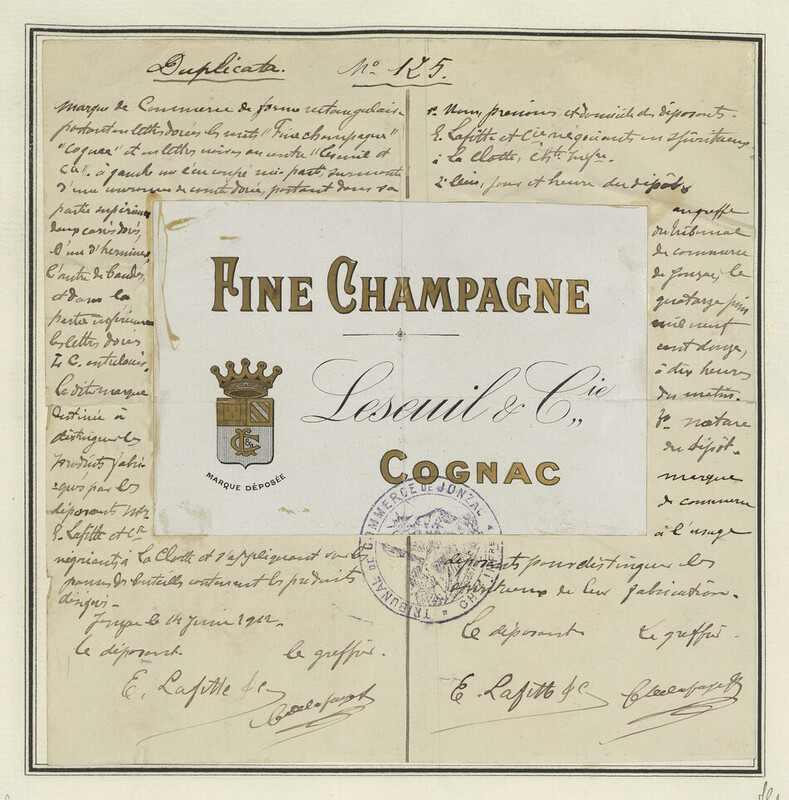 Duplicata. N° 125.
Marque de Commerce de forme rectangulaire
portant en lettres dorées les mots "Fine champagne"
"Cognac" et en lettres noires au centre "Leseuil et
Cie". à gauche un écu coupé mi-parti, surmonté
d'une couronne de comte dorée, portant dans sa
partie supérieure
deux carrés dorés,
l'un d'hermines,
l'autre de bandes,
et dans la
partie inférieure
les lettres dorées
L C. entrelacées.
La dite marque
destinée à
distinguer les
produits fabri-
qués par les
déposants MM.
E. Lafitte et Cie
négociants à La Clotte et s'appliquant sur les
panses des bouteilles contenant les produits
désignés.
Jonzac le 14 Juin 1912.
Le déposant. Le greffier.
E. Lafitte & C
1° Noms, prénoms et domicile des déposants.
E. Lafitte et Cie négociants en spiritueux
à La Clotte, Chte Infre.
2° lieu, jour et heure du dépôt
au greffe
du tribunal
de commerce
de Jonzac, le
quatorze juin
mil neuf
cent douze,
à dix heures
du matin.
3° nature
du dépôt.
marque
de commerce
à l'usage
déposants pour distinguer les
spiritueux de leur fabrication.
Le déposant Le greffier.
E. Lafitte & C
FINE CHAMPAGNE
Leseuil & Cie
COGNAC
L & C
MARQUE DÉPOSÉE
TRIBUNAL DE COMMERCE DE JONZAC
CHTE INFRE